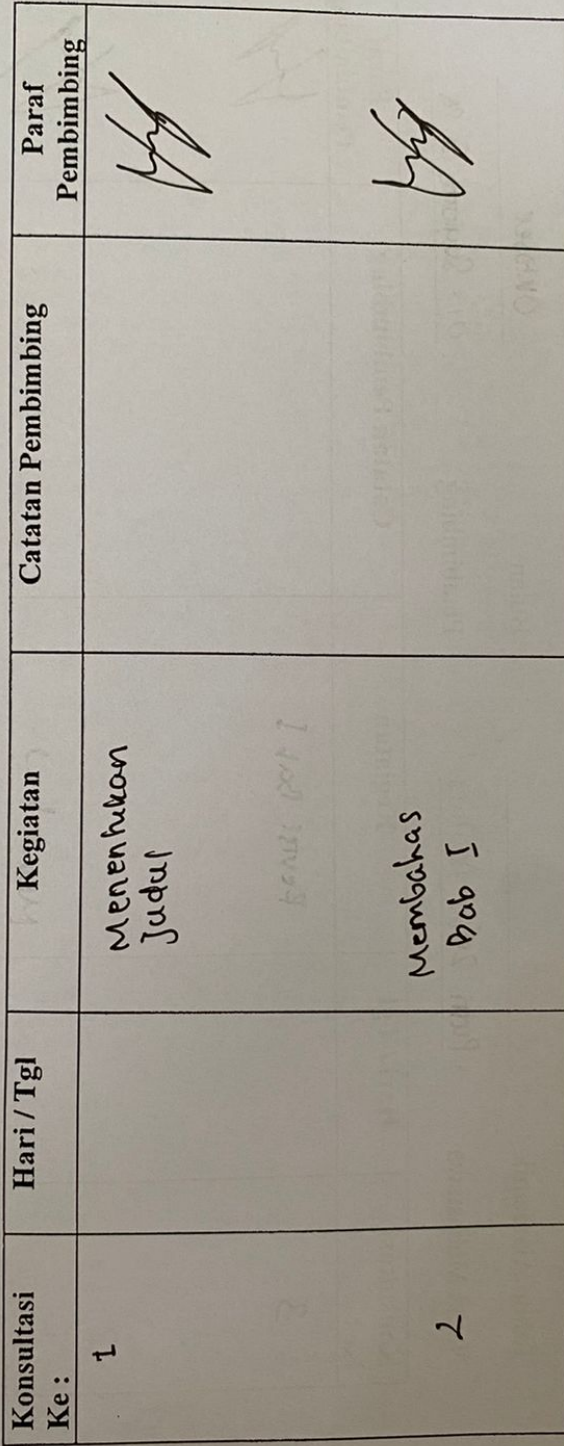 Konsultasi Ke : Hari / Tgl Kegiatan Catatan Pembimbing Paraf Pembimbing
1 Menentukan
Judul
2 Membahas
Bab I